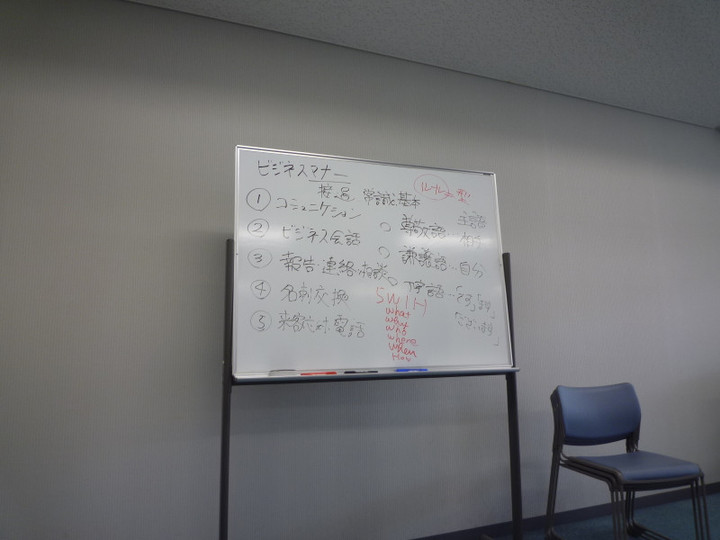 ビジネスマナー
接遇 常識 基本
ルール 型
① コミュニケーション
② ビジネス会話
③ 報告・連絡・相談
④ 名刺交換
⑤ 来客応対・電話
○ 尊敬語… 主語 相手
○ 謙譲語… 自分
○ 丁寧語…「です」「ます」
「ございます」
5W1H
what
what
who
where
when
How